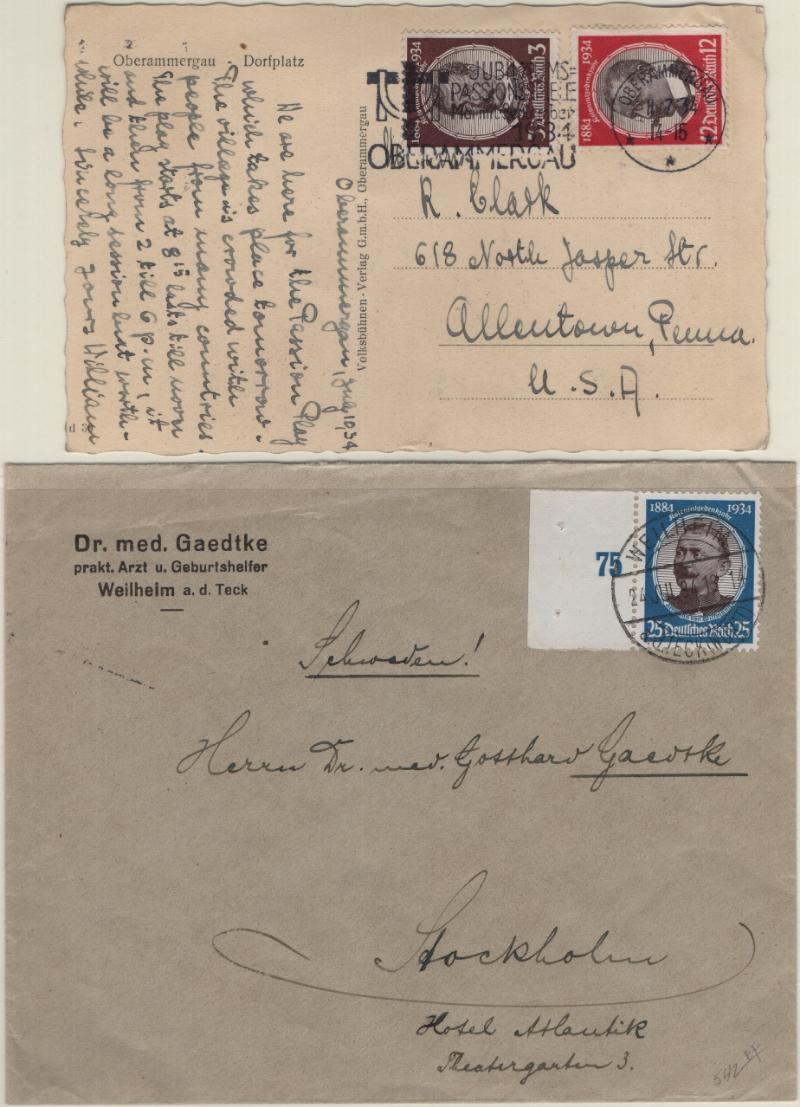 Oberammergau Dorfplatz
Oberammergau, July 10, 34
We are here for the Passion Play
which takes place tomorrow.
The village is crowded with
people from many countries.
The play starts at 8 15 lasts till noon
and then from 2 till 6 p.m, it
will be a long session but worth-
while. Sincerely yours William
Volksbühnen-Verlag G.m.b.H., Oberammergau
1884 1934
3 Deutsches Reich 3
1884 1934
12 Deutsches Reich 12
JUBILÄUMS=
PASSIONSSPIELE
1934
OBERAMMERGAU
OBERAMMERGAU
14-15
R. Clark
618 North Jasper Str.
Allentown, Penna.
U.S.A.
Dr. med. Gaedtke
prakt. Arzt u. Geburtshelfer
Weilheim a. d. Teck
75
1884 1934
25 Deutsches Reich 25
WEILHEIM
24 JUL 34 18
(TECK)
Schweden!
Herrn Dr. med. Gotthard Gaedtke
Stockholm
Hotel Atlantik
Theatergarten 3.
542